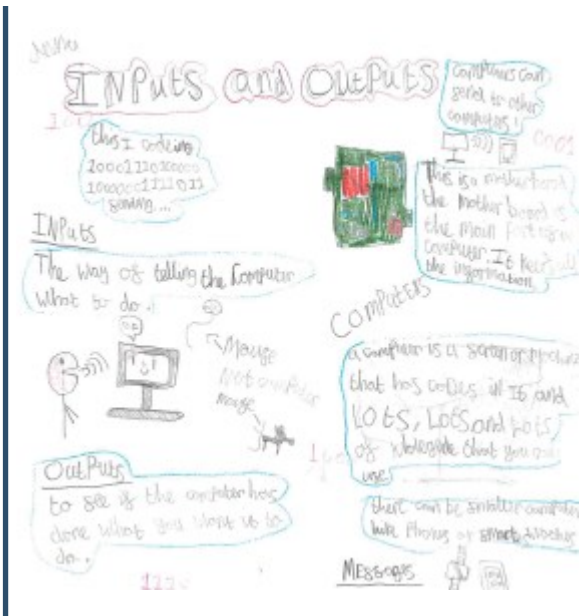 INPuts and OutPuts
computers can
send to other
computers!
this I codeing
sending....
0001
This is a motherboard
the mother board is
the main part of a
computer. It keeps all
the information
INPuts
The way of telling the computer
what to do.
Mouse
Not computer
mouse
COMPuters
a computer is a screen or machine
that has codes in it and
LOtS, LotS and LotS
of that you can
use
OutPuts
to see if the computer has
done what you want it to
do..
there can be smaller computers
like Phones or smart watches
1110
MESSages